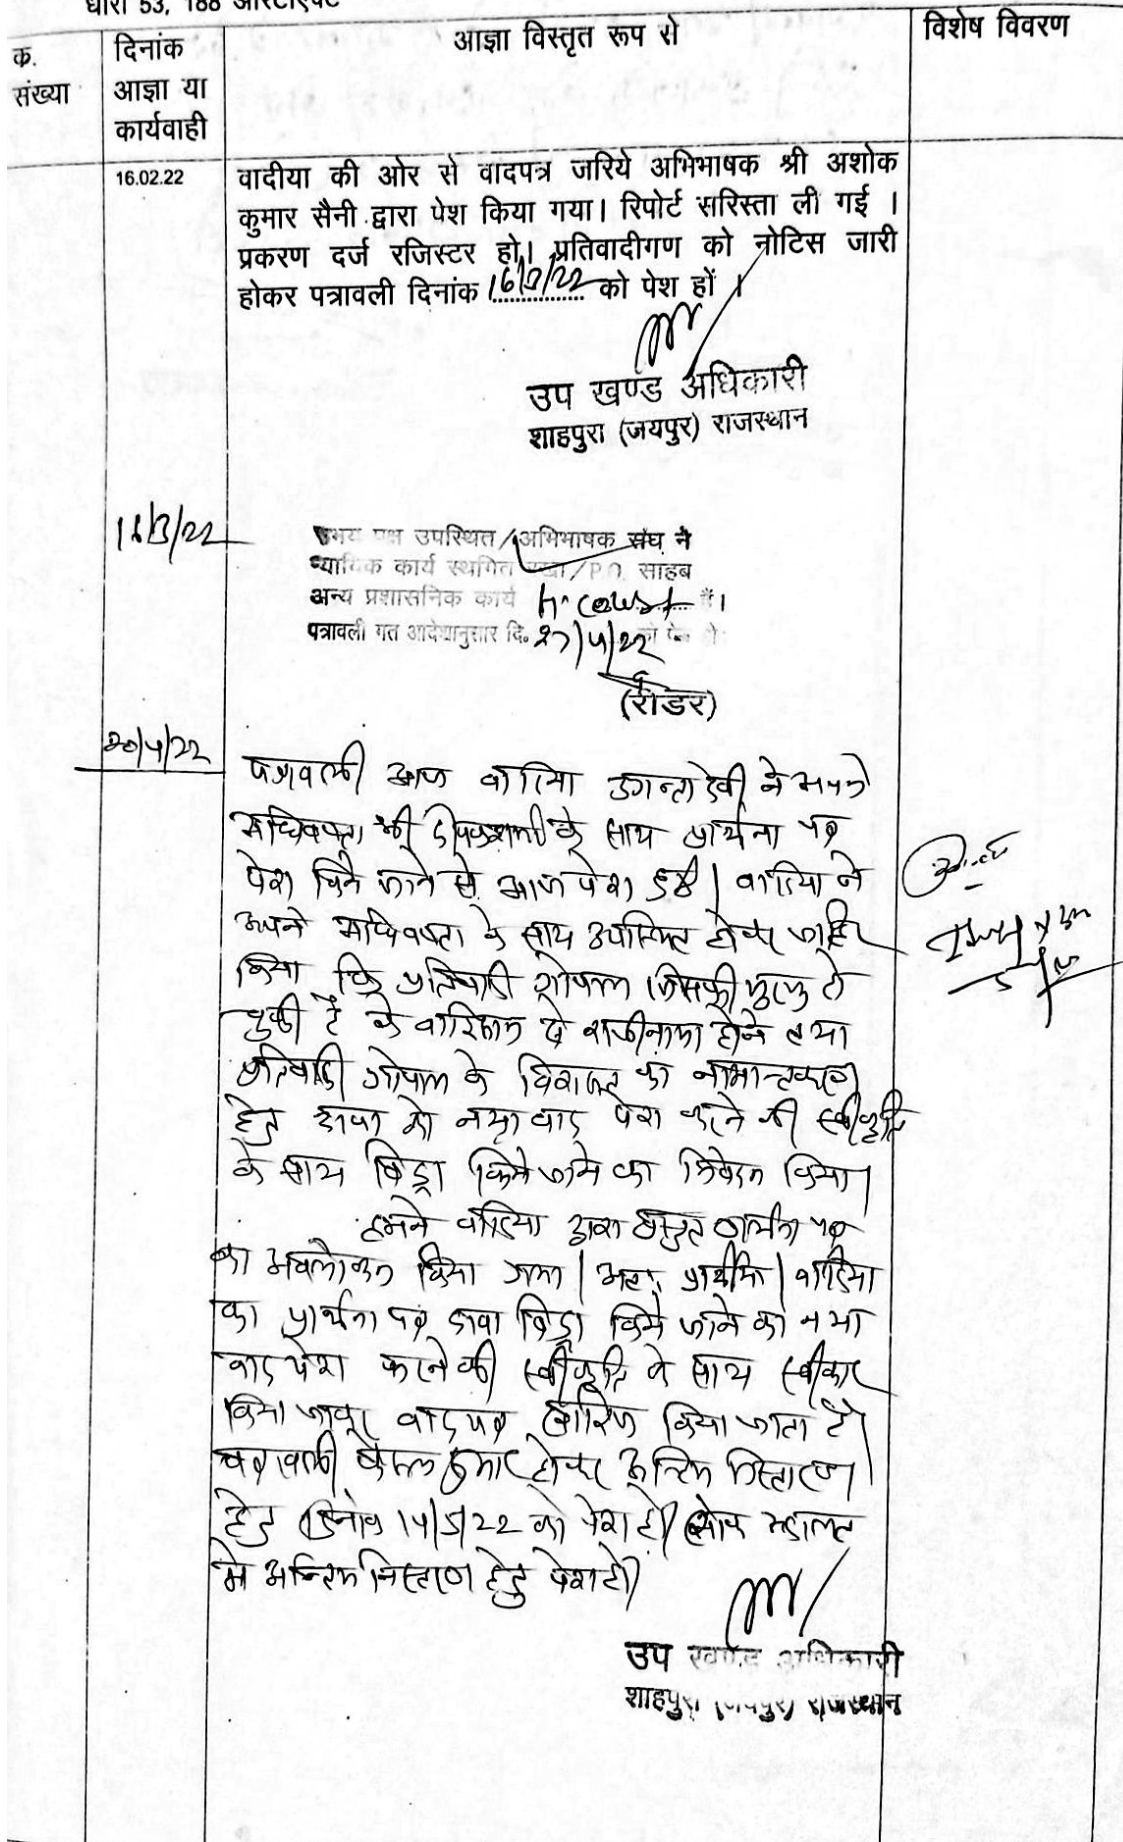 धारा 53, 188 आरटीएक्ट
क. संख्या
दिनांक आज्ञा या कार्यवाही
आज्ञा विस्तृत रूप से
विशेष विवरण
16.02.22
वादीया की ओर से वादपत्र जरिये अभिभाषक श्री अशोक
कुमार सैनी द्वारा पेश किया गया। रिपोर्ट सरिस्ता ली गई ।
प्रकरण दर्ज रजिस्टर हो। प्रतिवादीगण को नोटिस जारी
होकर पत्रावली दिनांक 16/3/22 को पेश हों ।
उप खण्ड अधिकारी
शाहपुरा (जयपुर) राजस्थान
16/3/22
उभय पक्ष उपस्थित/अभिभाषक संघ ने
न्यायिक कार्य स्थगित रखा/P.O. साहब
अन्य प्रशासनिक कार्य
पत्रावली गत आदेशानुसार दि. 27/4/22 को पेश हो
(रीडर)
20/4/22
पत्रावली आज वादिया कान्ता देवी ने अपने
अधिवक्ता श्री के साथ प्रार्थना पत्र
पेश किये जाने से आज पेश हुई। वादिया ने
अपने अधिवक्ता के साथ उपस्थित होकर जाहिर
किया कि प्रतिवादी गोपाल जिसकी मृत्यु हो
चुकी है के वारिसान से राजीनामा होने तथा
प्रतिवादी गोपाल के विरासत का नामान्तकरण
हेतु दावा को नया वाद पेश करने की स्वीकृति
के साथ विड्रा किये जाने का निवेदन किया।
हमने वादिया द्वारा प्रस्तुत प्रार्थना पत्र
का अवलोकन किया गया। अतः वादिया
का प्रार्थना पत्र दावा विड्रा किये जाने का नया
वाद पेश करने की स्वीकृति के साथ स्वीकार
किया जाकर वाद पत्र खारिज किया जाता है।
पत्रावली फैसल शुमार होकर अन्तिम निस्तारण
हेतु दिनांक 14/5/22 को पेश हो। लोक अदालत
मे अन्तिम निस्तारण हेतु पेश हो।
उप खण्ड अधिकारी
शाहपुरा (जयपुर) राजस्थान